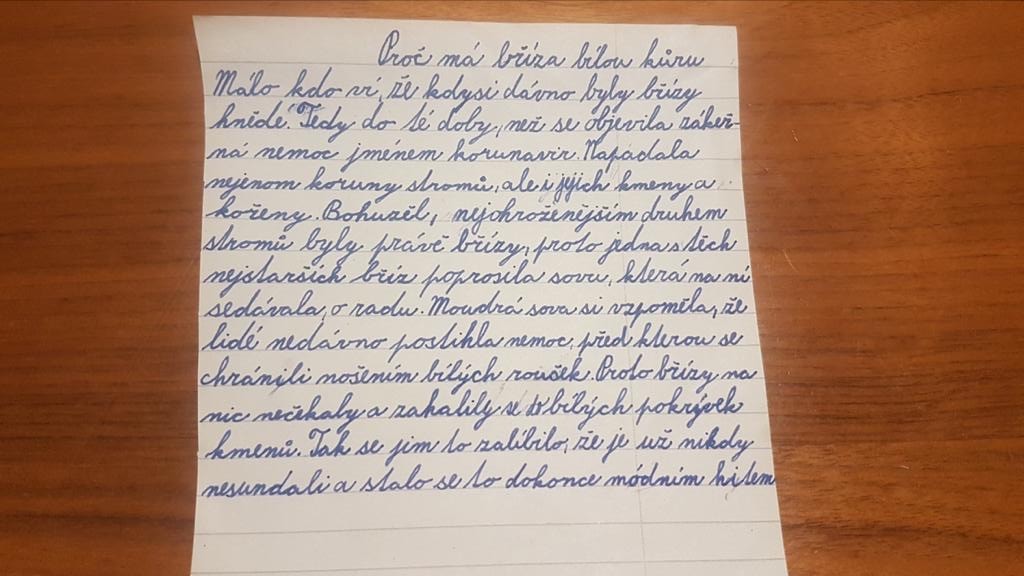 Proč má bříza bílou kůru
Málo kdo ví, že kdysi dávno byly břízy
hnědé. Tedy do té doby, než se objevila zákeř-
ná nemoc jménem korunavir. Napadala
nejenom koruny stromů, ale i jejich kmeny a
kořeny. Bohužěl, nejohroženějším druhem
stromů byly právě břízy, proto jedna s těch
nejstarších bříz poprosila sovu, která na ní
sedávala, o radu. Moudrá sova si vzpoměla, že
lidé nedávno postihla nemoc, před kterou se
chránili nošením bílých roušek. Proto břízy na
nic nečekaly a zahalily se do bílých pokrývek
kmenů. Tak se jim to zalíbilo, že je už nikdy
nesundali a stalo se to dokonce módním hitem